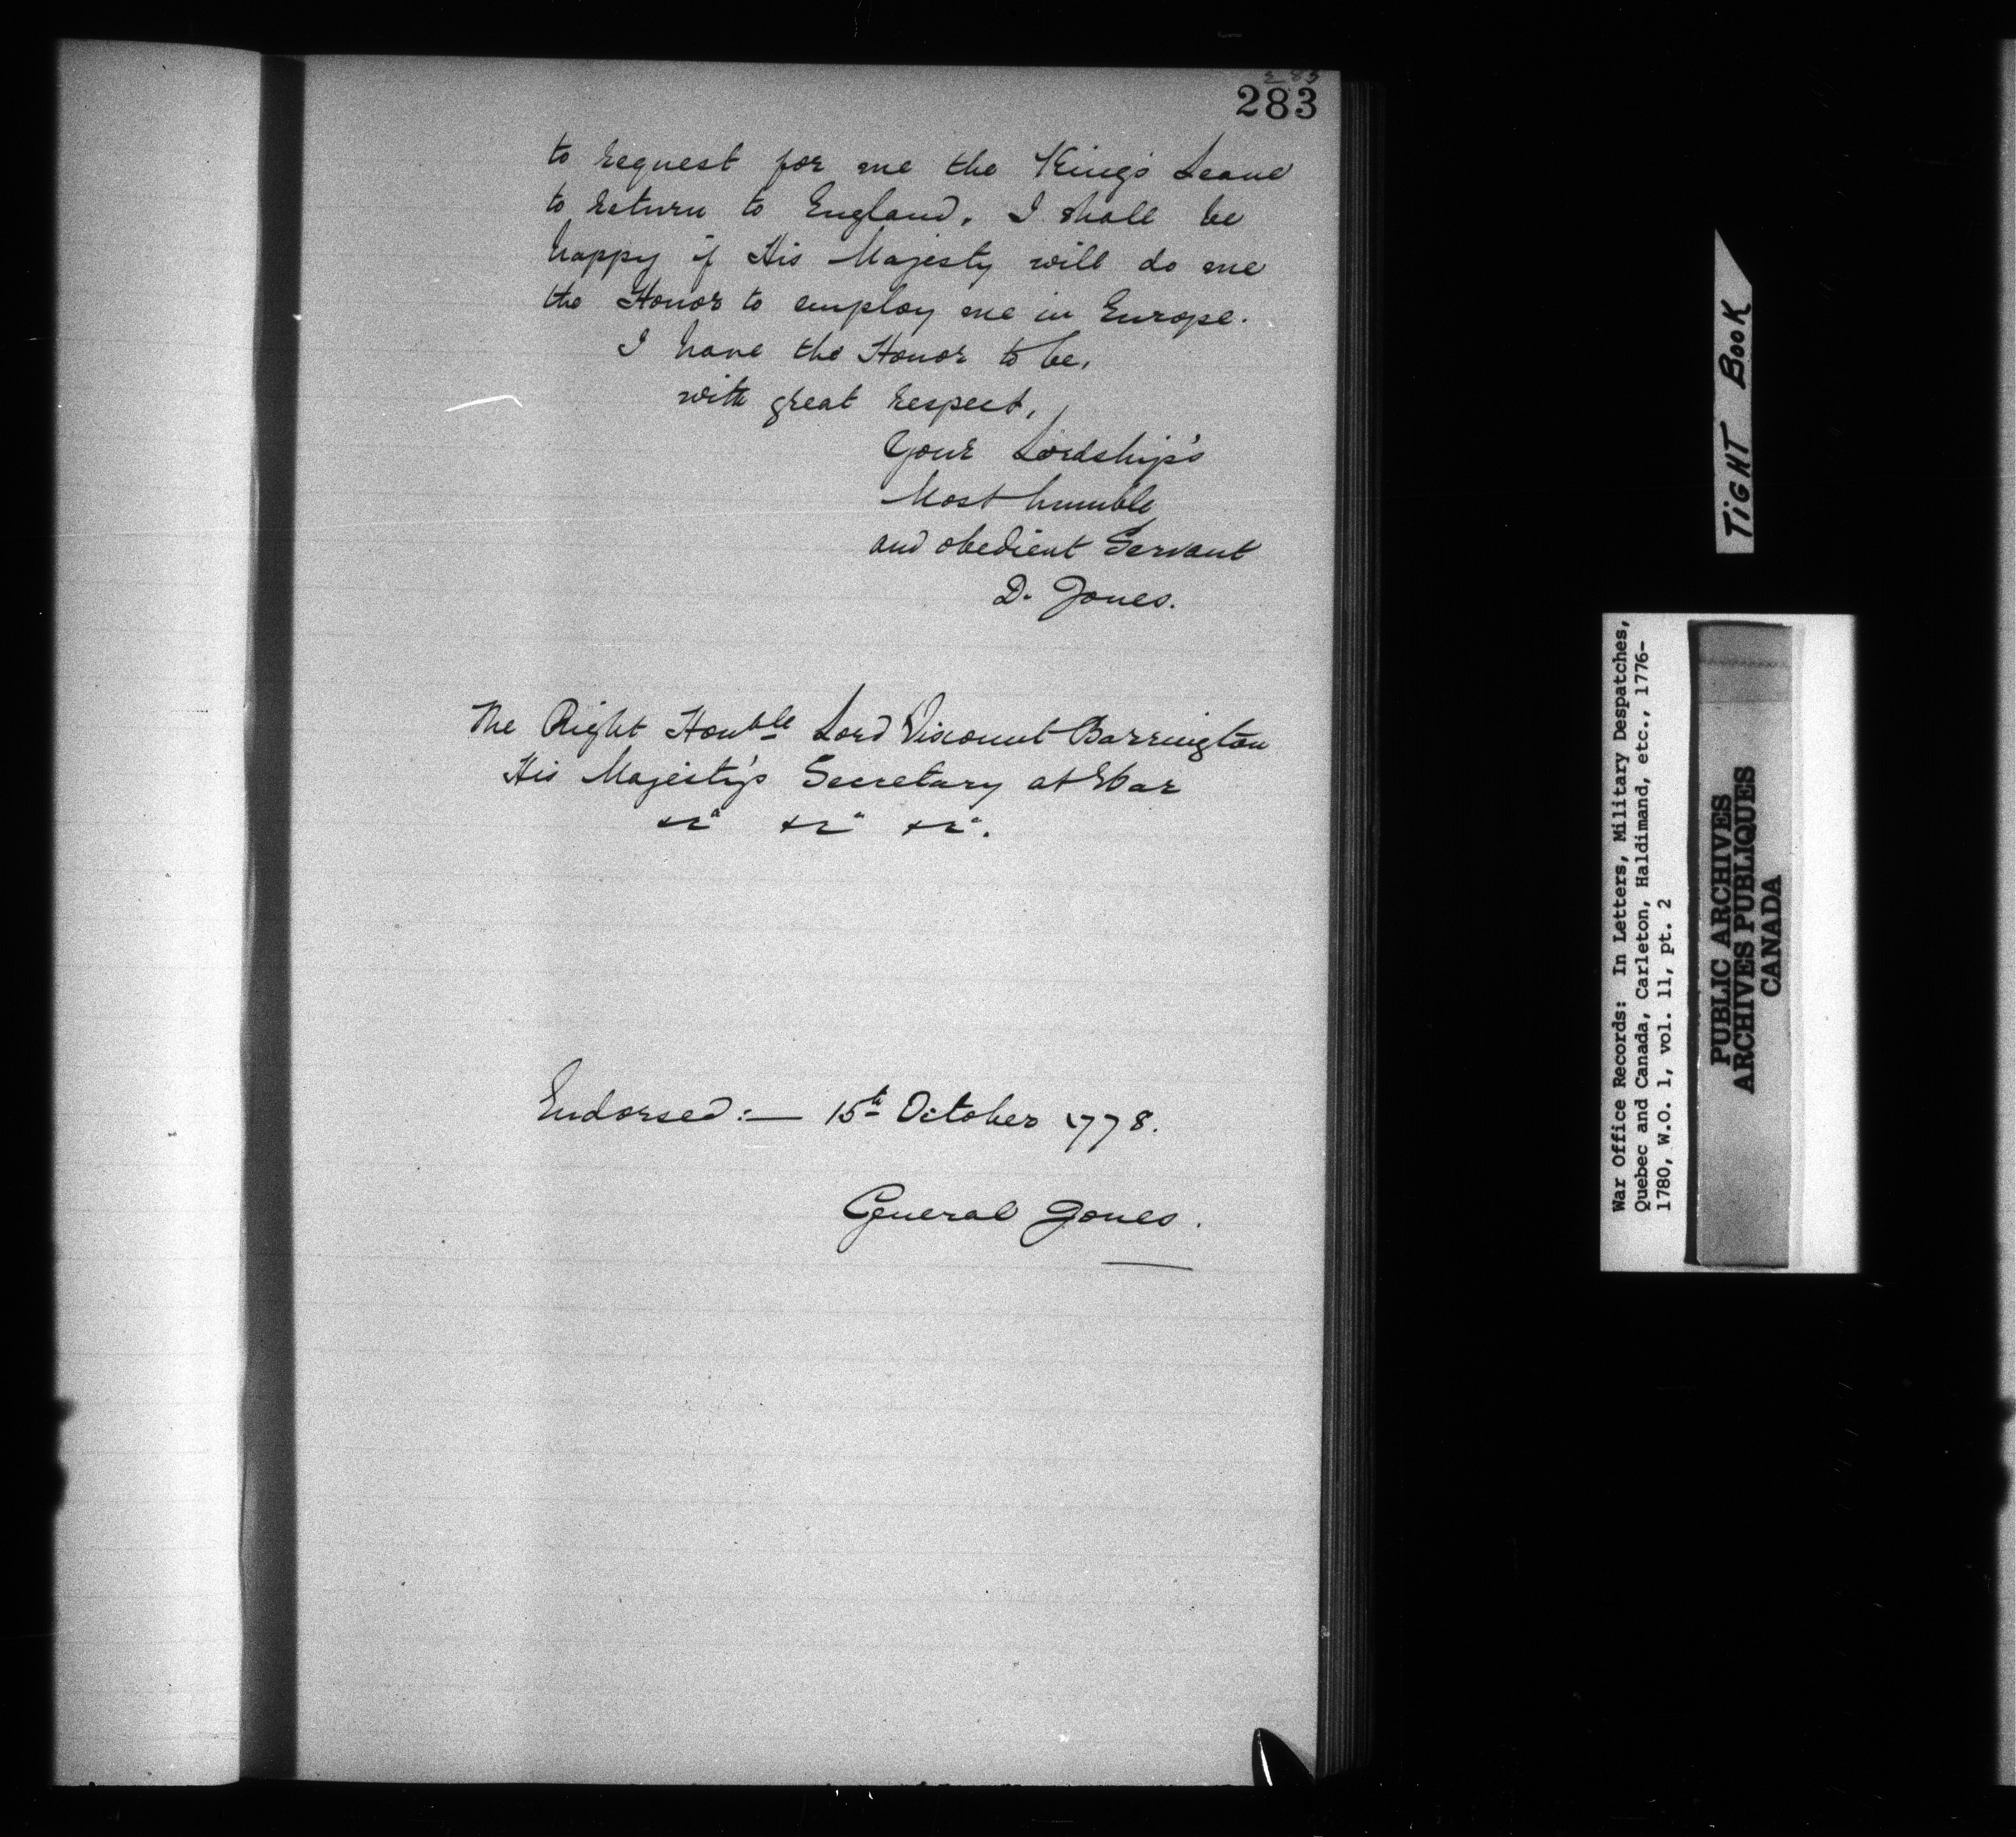 283
283
to request for me the King's Leave
to return to England. I shall be
happy if His Majesty will do me
the Honor to employ me in Europe.
I have the Honor to be,
with great respect,
Your Lordship's
Most humble
and obedient Servant
D. Jones.
The Right Honble Lord Viscount Barrington
His Majesty's Secretary at War
&ca &ca &ca.
Endorsed:— 15th October 1778.
General Jones.
TIGHT BOOK
War Office Records: In Letters, Military Despatches,
Quebec and Canada, Carleton, Haldimand, etc., 1776-
1780, W.O. 1, vol. 11, pt. 2
PUBLIC ARCHIVES
ARCHIVES PUBLIQUES
CANADA